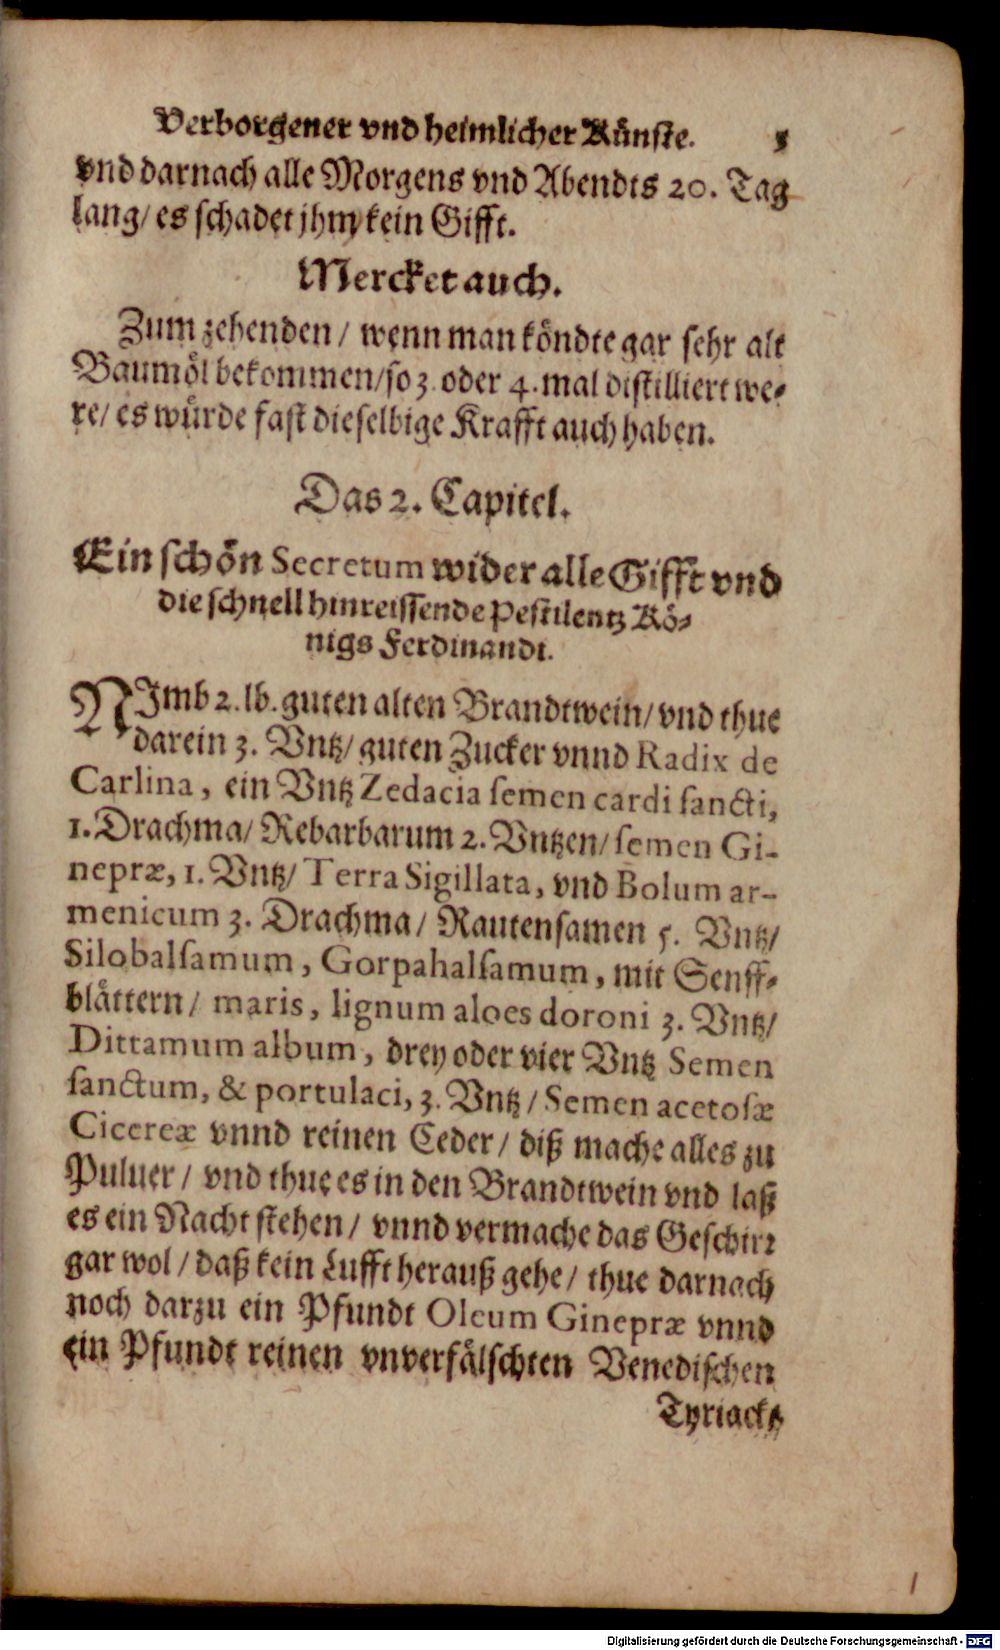 Verborgener vnd heimlicher Künste. 5
vnd darnach alle Morgens vnd Abendts 20. Tag
lang/ es schadet jhm kein Gifft.
Mercket auch.
Zum zehenden / wenn man köndte gar sehr alt
Baumöl bekommen/ so 3. oder 4. mal distilliert we-
re/ es würde fast dieselbige Krafft auch haben.
Das 2. Capitel.
Ein schön Secretum wider alle Gifft vnd
die schnell hinreissende Pestilentz Kö-
nigs Ferdinandi.
NImb 2. lb. guten alten Brandtwein/ vnd thue
darein 3. Vntz/ guten Zucker vnnd Radix de
Carlina, ein Vntz Zedacia semen cardi sancti,
1. Drachma/ Rebarbarum 2. Vntzen/ semen Gi-
nepræ, 1. Vntz/ Terra Sigillata, vnd Bolum ar-
menicum 3. Drachma/ Rautensamen 5. Vntz/
Silobalsamum, Gorpahalsamum, mit Senff-
blättern/ maris, lignum aloes doroni 3. Vntz/
Dittamum album, drey oder vier Vntz Semen
sanctum, & portulaci, 3. Vntz / Semen acetosæ
Cicereæ vnnd reinen Ceder/ diß mache alles zu
Puluer / vnd thue es in den Brandtwein vnd laß
es ein Nacht stehen/ vnnd vermache das Geschirr
gar wol / daß kein Lufft herauß gehe/ thue darnach
noch darzu ein Pfundt Oleum Ginepræ vnnd
ein Pfundt reinen vnverfälschten Venedischen
Tyriack/
1
Digitalisierung gefördert durch die Deutsche Forschungsgemeinschaft - DFG